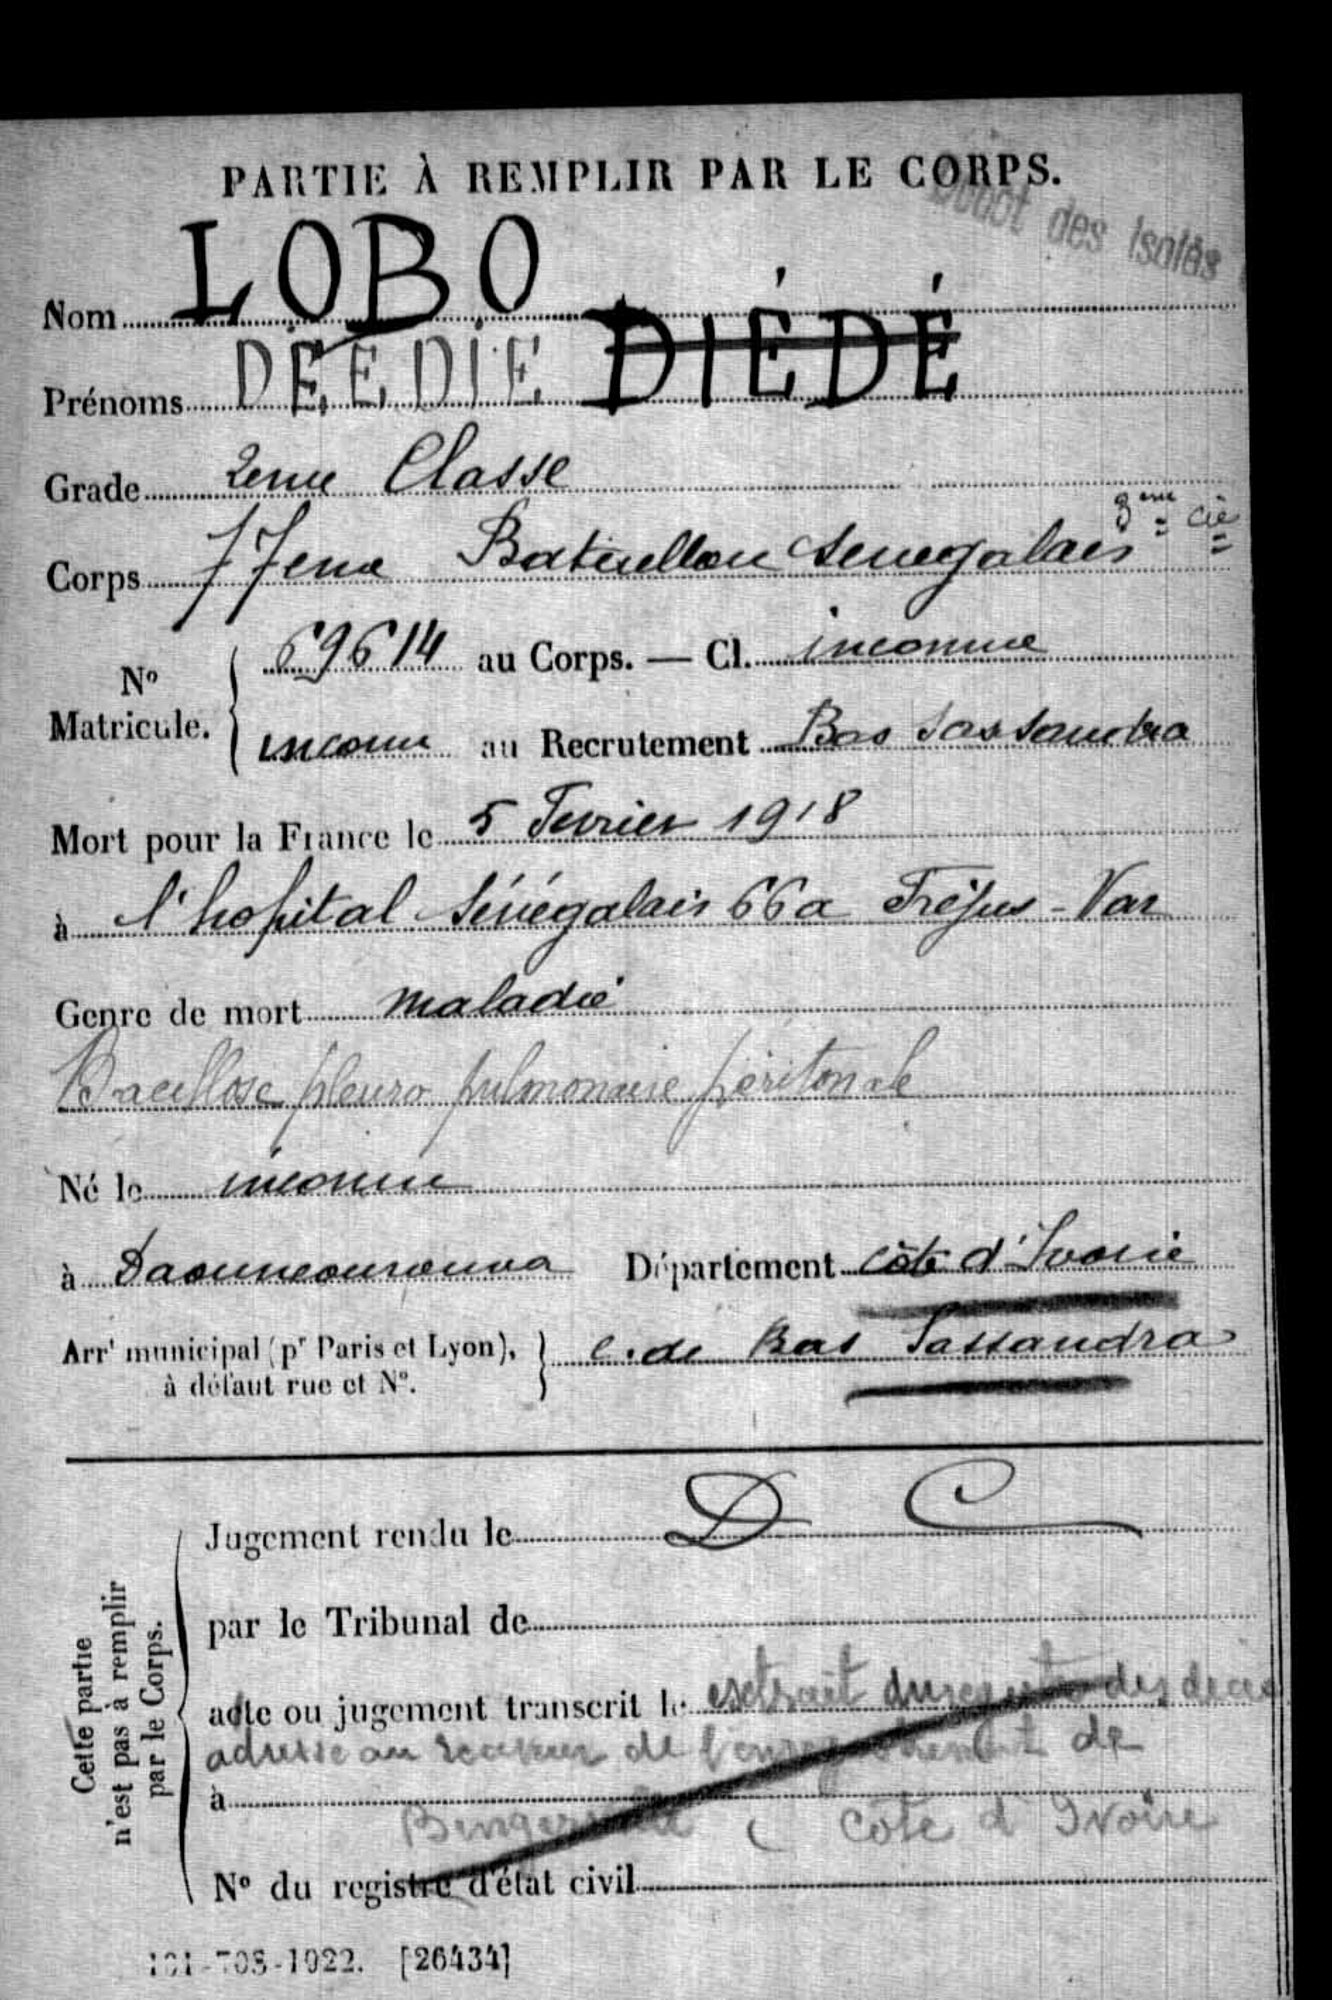 PARTIE À REMPLIR PAR LE CORPS.
Dépôt des Isolés
Nom LOBO
Prénoms DÉEDIE DIÉDÉ
Grade 2eme Classe
3eme Cie
Corps 77eme Bataillon Senegalais
Nº Matricule. 69614 au Corps. — Cl. inconnue
inconnu au Recrutement Bas Sassandra
Mort pour la France le 5 Fevrier 1918
à l'hopital Sénégalais 66a Fréjus - Var
Genre de mort maladie
Bacillose pleuro pulmonaire péritonale
Né le inconnu
à Département Côte d'Ivoire
Arrt municipal (pr Paris et Lyon), à défaut rue et Nº. c. de Bas Sassandra
Cette partie n'est pas à remplir par le Corps.
Jugement rendu le D C
par le Tribunal de
acte ou jugement transcrit le extrait du registre des décès
adressé au receveur de l'enregistrement de
à Bingerville Côte d'Ivoire
Nº du registre d'état civil
101-708-1922. [26434]